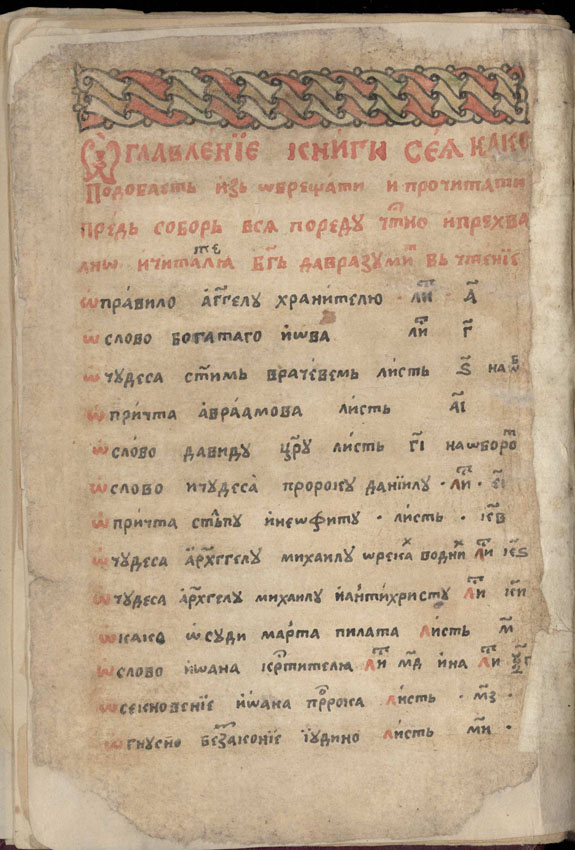 Ѡглавле́нїе кни́ги сеѧ̀ како
Подобаетъ изь ѡбрещати и прочитати
предь соборь всѧ пореду чт҇но и прехва
лнѡ и читателїѧ бг҃ь да вразуми҇т вь чтенїе
ѡ пра́вило а҆гг҃елу храни́телю ли҇ст а҃
ѡ слово богатаго и҆ѡва ли҇ст г҃
ѡ чудеса ст҃имь врачевемь ли́сть ѕ҃ на ѡ҇б
ѡ при́чта авра́амова листь а҃і
ѡ сло́во давиду цр҃у ли́сть г҃і на ѡборо҇т
ѡ слово и чудеса̀ пророку данїилу · ли҇ст · е҃і
ѡ при́чта сть́пу и҆ неѡфиту · ли́сть · к҃в
ѡ чудеса а҆рх҃ггелу михаилу ѡ река҇х водни҇х ли҇ст к҃ѕ
ѡ чудеса а҆рх҃гелу михаилу и҆ а҆нтихристу ли҇ст к҃и
ѡ како ѡ҆суди ма́рта пилата ли́сть м҃
ѡ слово и҆ѡана кр҃тителѧ ли҇ст м҃д и на ли҇ст
ѡ секновенїе и҆ѡана пр҃рока ли́сть · м҃з ·
ѡ гнусно без҃аконїе їудино ли́сть м҃и ·